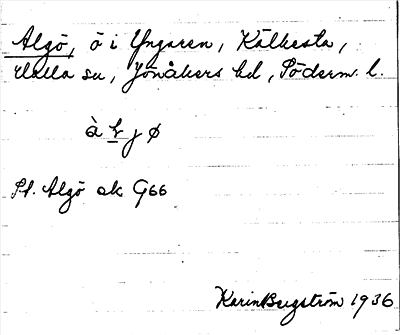 Algö, ö i Yngaren, Kälkesta,
Halla sn, Jönåkers hd, Söderm. l.
à l̲ j ø
St. Algö ek G66
Karin Bergström 1936